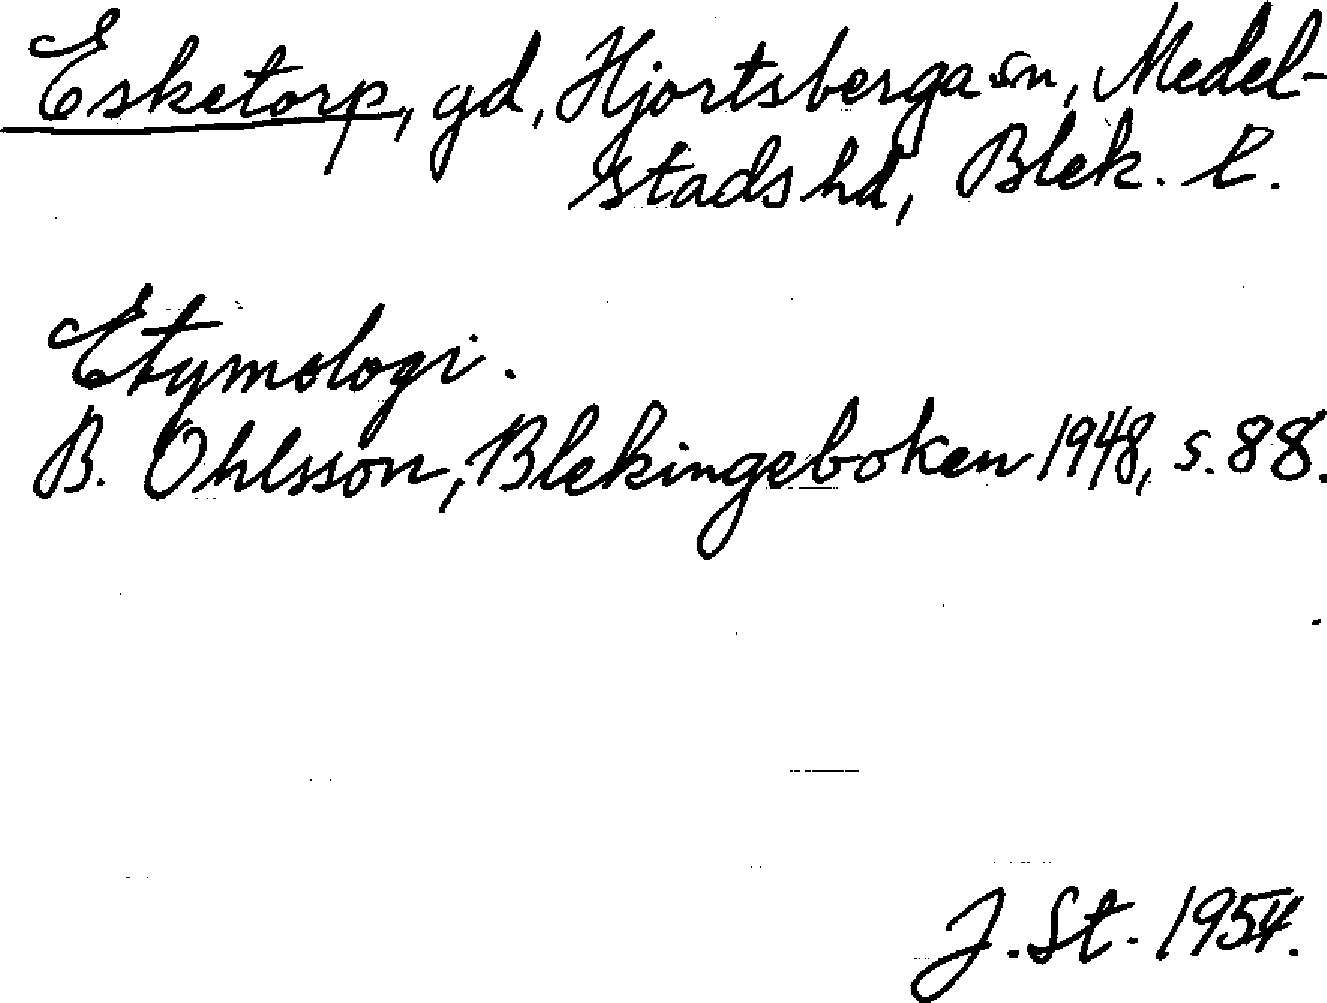 Esketorp, gd, Hjortsberga sn, Medel-
stads hd, Blek. l.
Etymologi.
B. Ohlsson, Blekingeboken 1948, s. 88.
J. St. 1954.